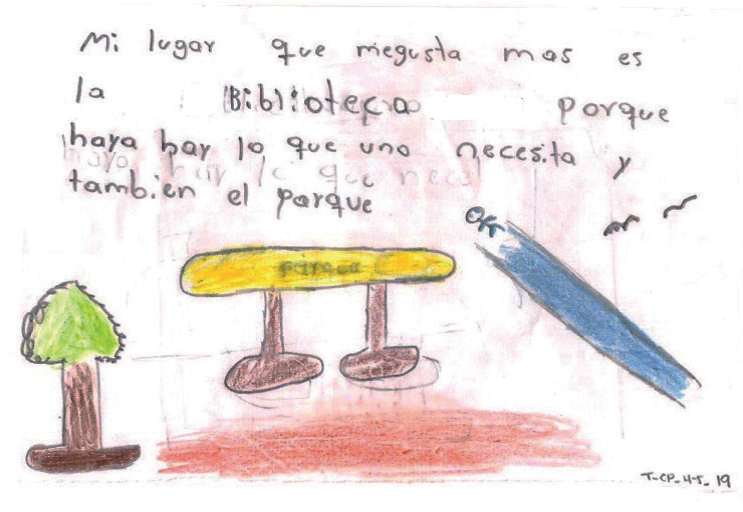 Mi lugar que megusta mas es
la Biblioteca porque
haya hay lo que uno necesita y
tambien el parque
parque
T-CP-4-5-19